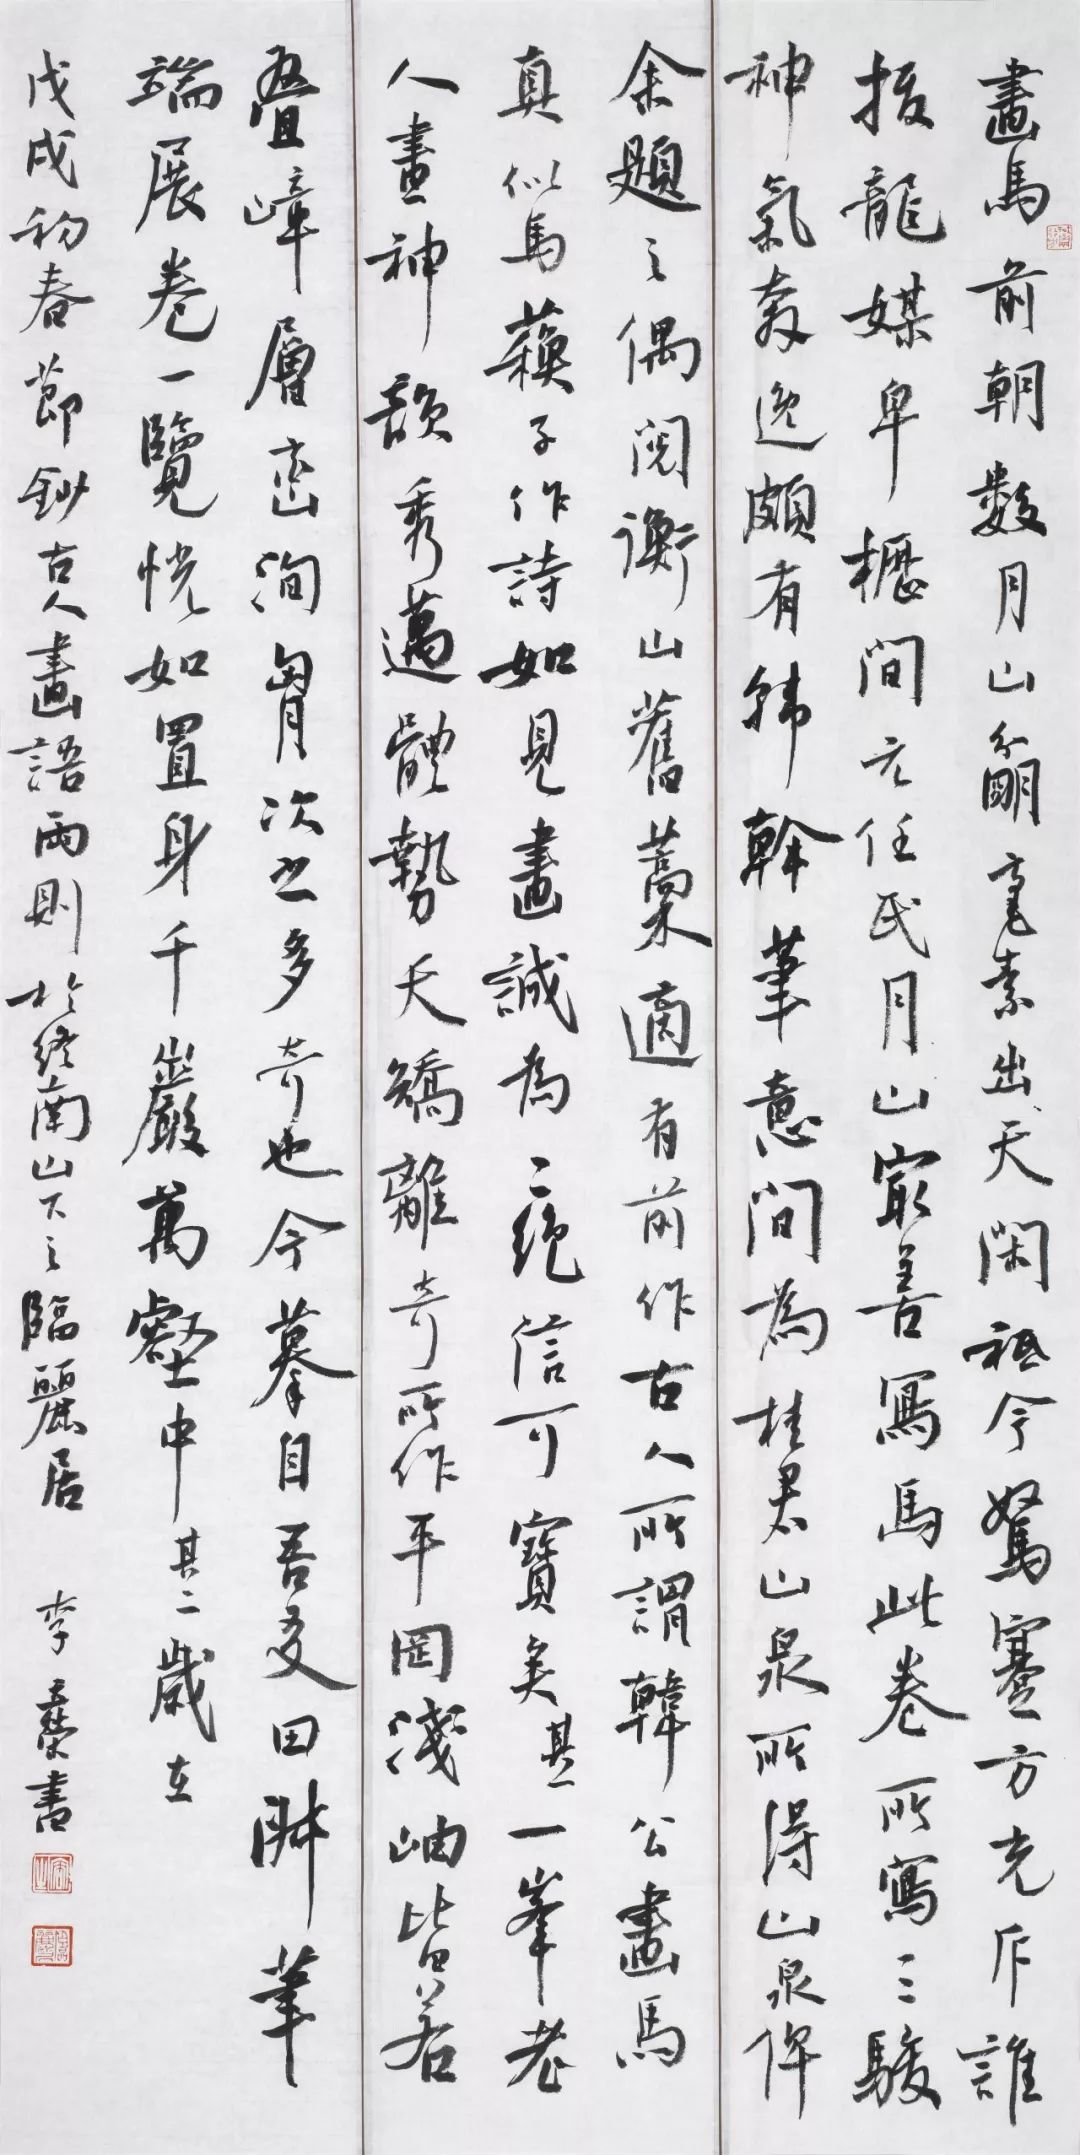 畫馬前朝數月山籋毫素出天閑祗今駑蹇方充斥誰
披龍媒皁櫪間元任氏月山寂善寫馬此卷所寫三駿
神氣奔逸頗有韩幹筆意間為桂君山泉所得山泉俾
余題之偶閱衡山舊藁適有前作古人所謂韓公畫馬
真似馬蘓子作詩如見畫誠為二絕信可寶矣其一一峯老
人畫神韻秀邁體勢夭矯離奇所作平岡淺岫皆若
疊嶂層巒洵胷次之多奇也今摹自吾友田
端展卷一覽恍如置身千巖萬壑中其二歲在
戊戌初春節鈔古人畫語兩則於終南山下之臨麗居 李書